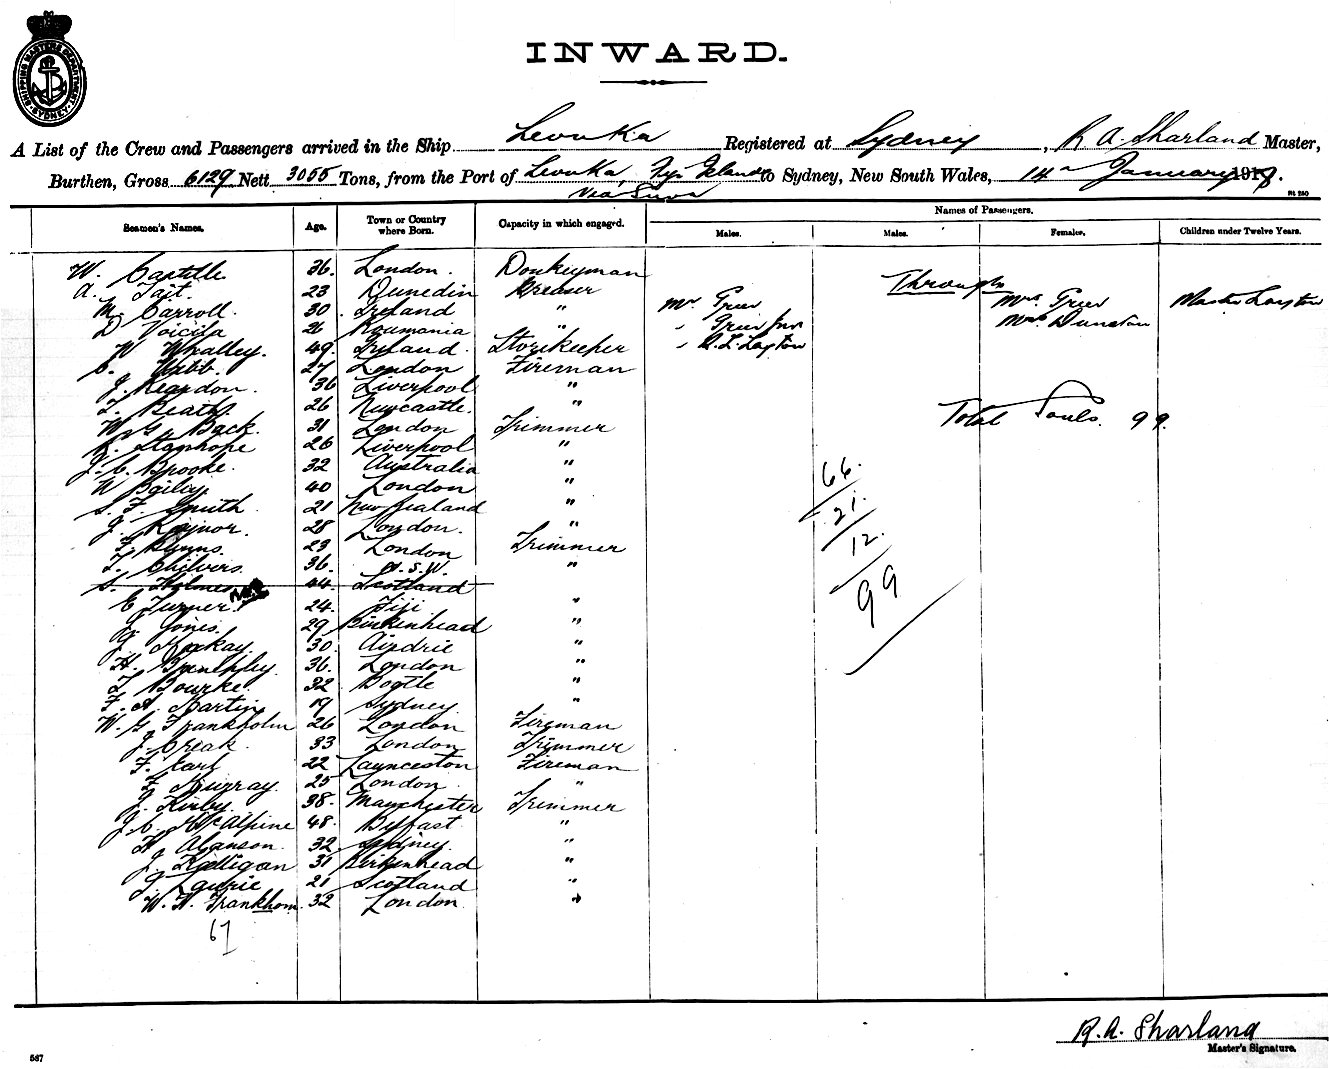 SHIPPING MASTERS DEPARTMENT SYDNEY
INWARD.
A List of the Crew and Passengers arrived in the Ship Levuka Registered at Sydney, R A. Sharland Master,
Burthen, Gross 6129 Nett 3055 Tons, from the Port of Levuka, Fiji Islands to Sydney, New South Wales, 14th January 1918.
Via Suva
Rt 250
Seamen's Names. Age. Town or Country where Born. Capacity in which engaged. Names of Passengers.
Males. Males. Females. Children under Twelve Years.
W. 36. London. Donkeyman
A. Tait. 23 Dunedin Greaser
M. Carroll. 30. Ireland "
D Voicila 26 Roumania "
W Whalley. 49. Ireland. Storekeeper
C. Webb. 27 London Fireman
J. Reardon. 36 Liverpool "
T. Heath. 26 Newcastle. "
W. G. Back. 31 London Trimmer
R. Stanhope 26 Liverpool "
J. C. Brooke. 32 Australia "
W 40 London "
S. F. Smith 21 New Zealand "
J. Rainor. 28 London. "
F. Flynns. 23 London Trimmer
T. Chilvers. 36. N.S.W. "
S. Holmes 44 Scotland
E Turner. 24. Fiji "
G. Jones. 29 Birkenhead "
J. Mackay. 30. Airdrie "
H. 36. London "
T. Bourke. 32 Bootle "
F. A. Martin 19 Sydney. "
W. G. Frankholm 26 London Fireman
J. Creak. 33 London Trimmer
F. Earl 22 Launceston Fireman
F. Murray. 25 London "
J. Kirby. 38. Manchester Trimmer
J. C. McAlpine 48. Belfast "
H Alanson. 32 Sydney. "
J. Ralligan 31 Birkenhead "
J. Laurie 21 Scotland "
W. H. Frankhom. 32 London "
67
Through
Mr Greer Mrs Greer Master Layton
" Greer Jnr Mrs Dunstan
" R. L. Layton
Total Souls. 99.
66.
21.
12.
99
R. A. Sharland
Master's Signature.
587